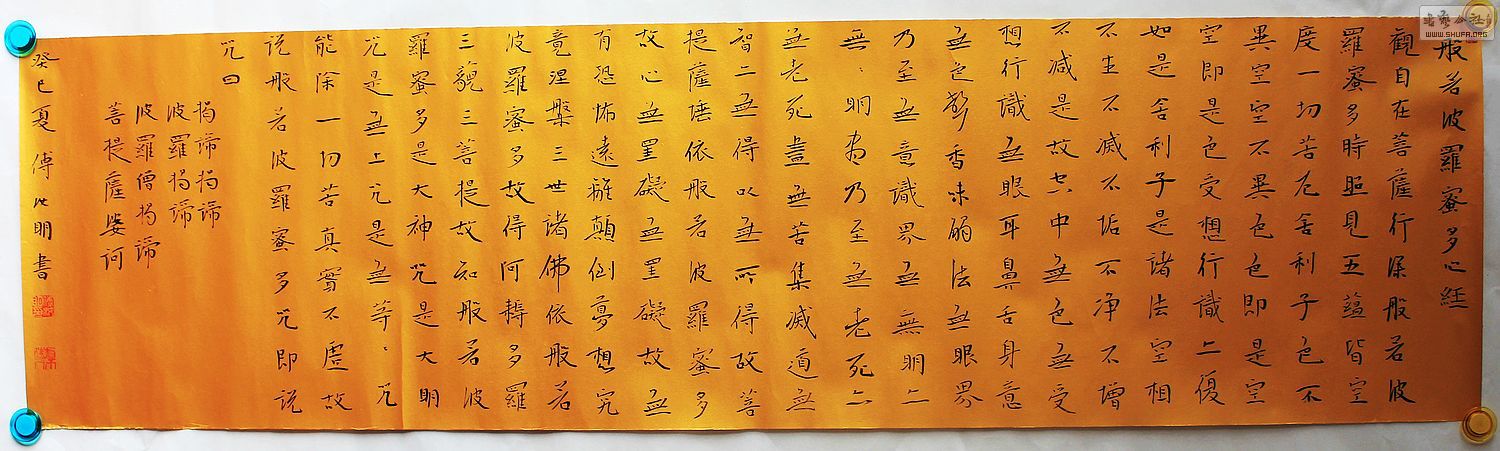 般若波羅蜜多心經
觀自在菩薩行深般若波
羅蜜多時照見五蘊皆空
度一切苦厄舍利子色不
異空空不異色色即是空
空即是色受想行識亦復
如是舍利子是諸法空相
不生不滅不垢不净不增
不減是故空中無色無受
想行識無眼耳鼻舌身意
無色聲香味觸法無眼界
乃至無意識界無無明亦
無、明盡乃至無老死亦
無老死盡無苦集滅道無
智亦無得以無所得故菩
提薩埵依般若波羅蜜多
故心無罣礙無罣礙故無
有恐怖遠離顛倒夢想究
竟涅槃三世諸佛依般若
波羅蜜多故得阿耨多羅
三藐三菩提故知般若波
羅蜜多是大神咒是大明
咒是無上咒是無等、咒
能除一切苦真實不虛故
説般若波羅蜜多咒即説
咒曰
揭諦揭諦
波羅揭諦
波羅僧揭諦
菩提薩婆訶
癸巳夏 傅明書
WWW.SHUFA.ORG